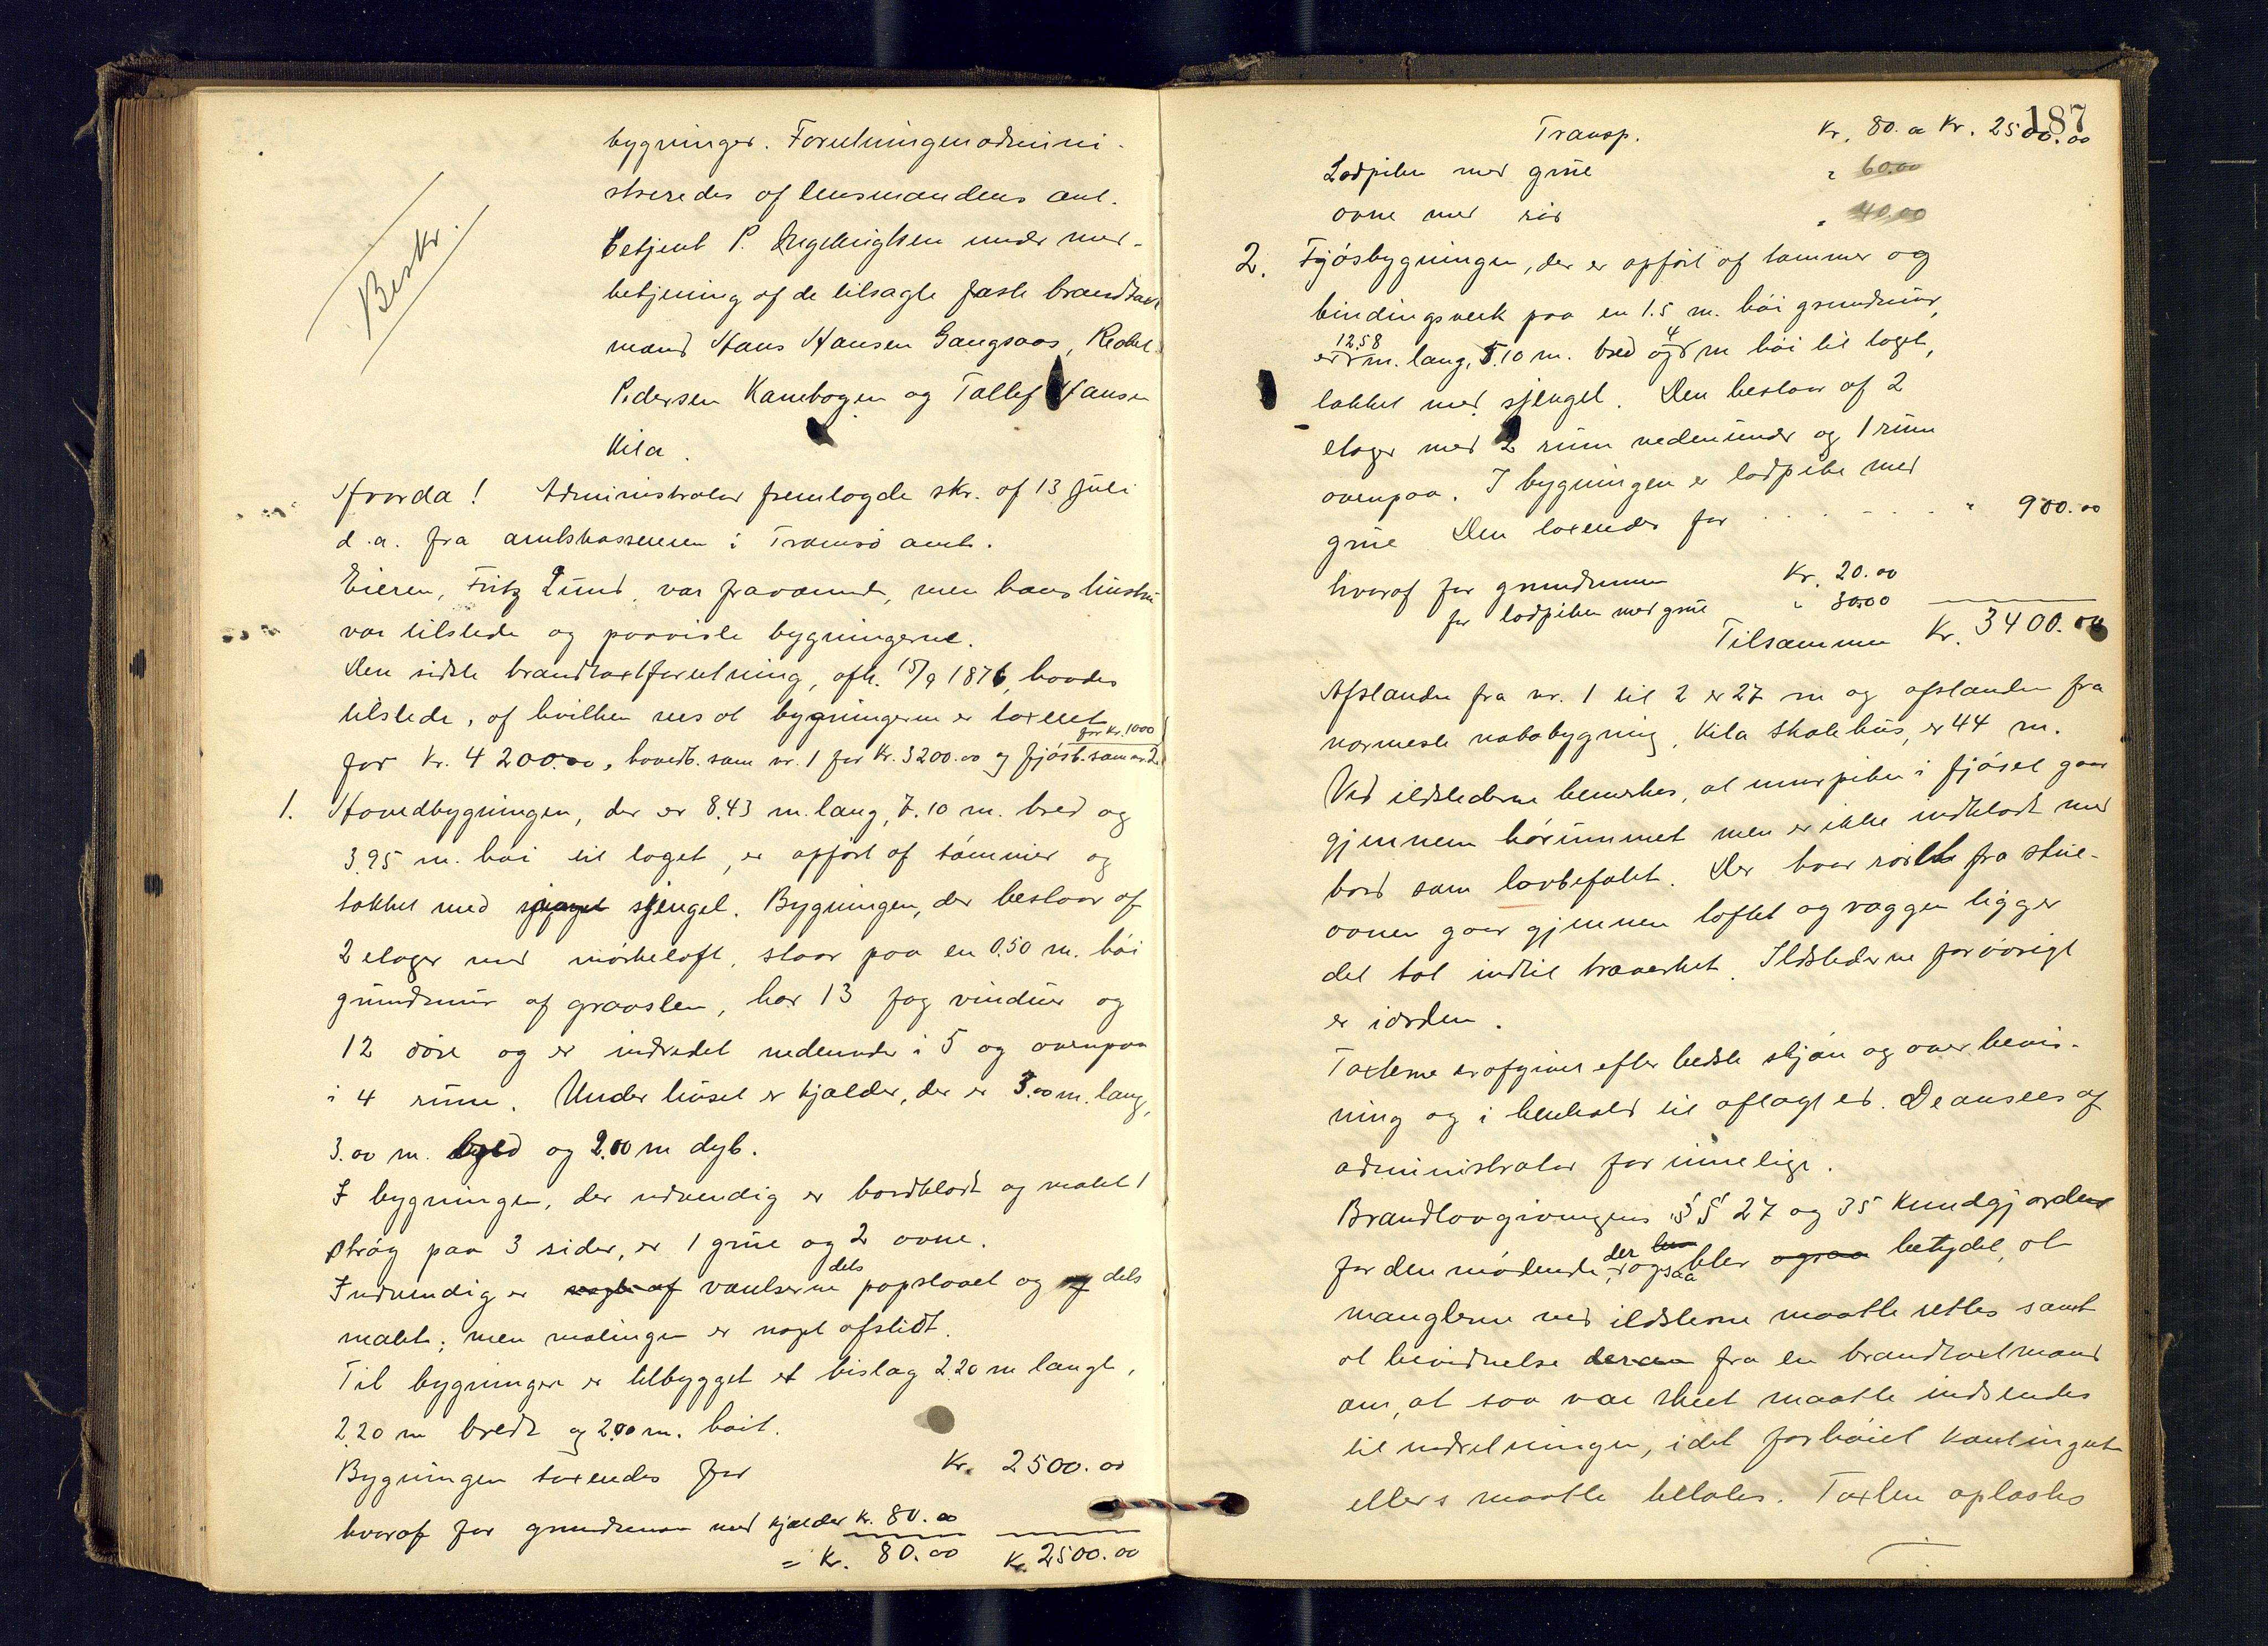 bygninger. Forretningen admini-
streredes af lensmandens aut.
betjent P. Ingebrigtsen under med-
betjening af de tilsagte faste brandtaxt
mænd Hans Hansen Gangsaas, Peder
Pedersen Kanebogen og Tollef Hansen
Kila.
Beskr.
Hvorda! Administrator fremlagde skr. af 13 juli
d.a. fra amtskassereren i Tromsø amt.
Eieren, Fritz Lund, var fraværende, men hans hustru
var tilstede og paaviste bygningerne.
Den sidste brandtaxtforretning, afh. 15/9 1876, havdes
tilstede, af hvilken sees at bygningerne er taxeret
for kr. 1000
for Kr. 4200.00, hovedb. som nr. 1 for Kr. 3200.00 og fjøsb. som nr. 2
1. Hovedbygningen, der er 8.43 m. lang, 7.10 m. bred og
3.95 m. høi til taget, er opført af tømmer og
takket med sjenget sjengel. Bygningen, der bestaar af
2 etager med mørkeloft, staar paa en 0.50 m. høi
grundmur af graasten, har 13 fag vinduer og
12 døre og er indredet nedenunder i 5 og ovenpaa
i 4 rum. Under huset er kjælder, der er 3.00 m. lang,
3.00 m. bred og 2.00 m dyb.
I bygningen, der udvendig er bordklædt og malet 1
strøg paa 3 sider, er 1 grue og 2 ovne.
dels
Indvendig er nogle af værelserne papslaaet og og dels
malet; men malingen er noget afslidt.
Til bygningen er tilbygget et bislag 2.20 m langt,
2.20 m bredt og 2.00 m. høit.
Bygningen taxeredes for Kr. 2500.00
hvoraf for grundmuren med kjælder Kr. 80.00
= Kr. 80.00 Kr. 2500.00
187
Transp. Kr. 80.00 Kr. 2500.00
Lodpiben med grue " 60.00
ovne med rør " 40.00
2. Fjøsbygningen, der er opført af tømmer og
bindingsverk paa en 1.5 m. høi grundmur,
12.58 4
er m. lang, 5.10 m. bred og m høi til taget,
takket med sjengel. Den bestaar af 2
etager med 2 rum nedenunder og 1 rum
ovenpaa. I bygningen er lodpibe med
grue Den taxeredes for . . . . . " 900.00
hvoraf for grundmuren Kr. 20.00
for lodpiben med grue " 30.00
Tilsammen Kr. 3400.00
Afstanden fra nr. 1 til 2 er 27 m og afstanden fra
nærmeste nabobygning, Kila skolehus, er 44 m.
Ved ildstederne bemerkes, at murpiben i fjøset gaar
gjennem hørummet men er ikke indklædt med
bord som lovbefalet. Der hvor røret fra stue-
ovnen gaar gjennem loftet og væggen ligger
det tæt indtil træverket. Ildstederne forøvrigt
er iorden.
Taxterne er afgivet efter bedste skjøn og overbevis-
ning og i henhold til aflagt ed. De ansees af
administrator for rimelige.
Brandlovgivningens §§ 27 og 35 kundgjordes
for den mødende, der ogsaa blev ogsaa betydet, at
manglerne ved ildstederne maatte rettes samt
at bevidnelse derom fra en brandtaxtmand
om, at saa var skeet maatte indsendes
til indretningen, idet forhøiet kontingent
ellers maatte betales. Taxten oplæstes